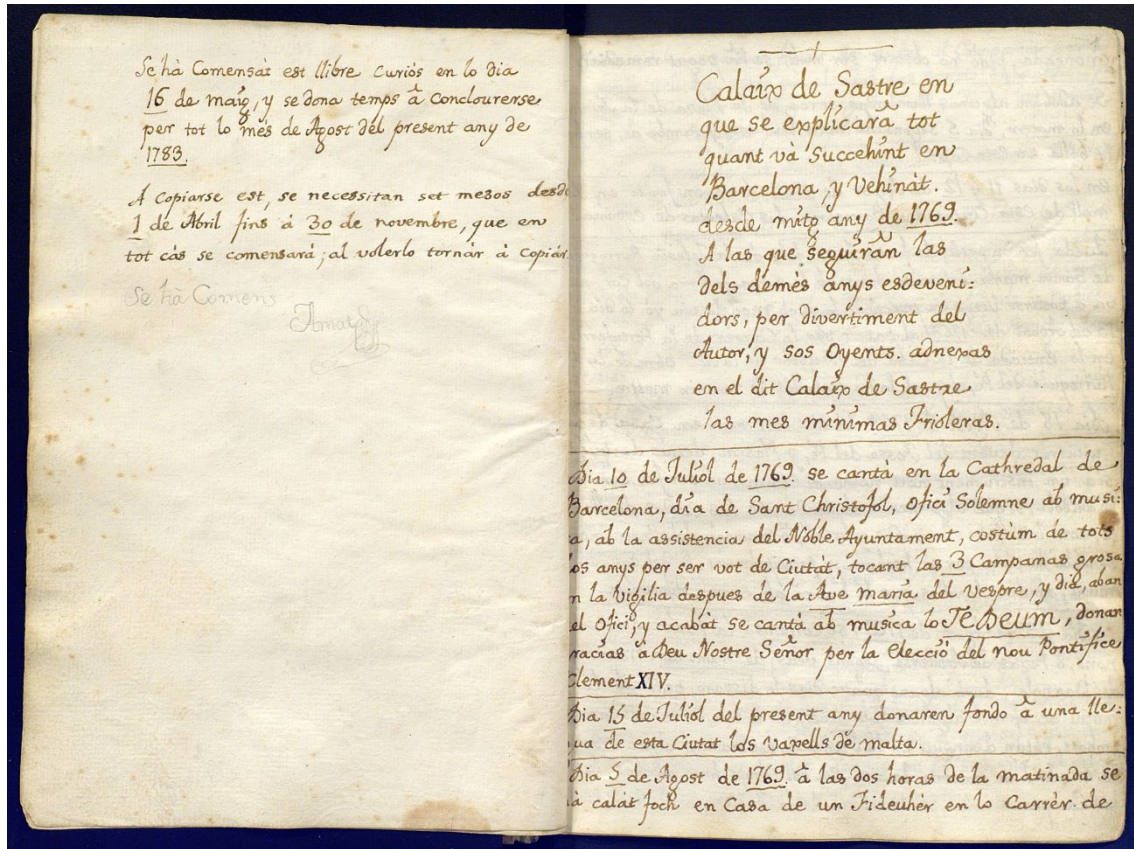 Se hà Comensat est llibre curiós en lo dia
16 de maig, y se dona temps â Conclourerse
per tot lo mes de Agost del present any de
1783.
A Copiarse est, se necessitan set mesos desde
1 de Abril fins á 30 de novembre, que en
tot cás se comensará; al volerlo tornar à Copiár
Se hà Comens
Amat
Calaix de Sastre en
que se explicarà tot
quant và Succehint en
Barcelona, y Vehinàt.
desde mitg any de 1769.
A las que seguiràn las
dels demès anys esdeveni:
dors, per divertiment del
Autor, y sos Oyents. adnexas
en el dit Calaix de Sastre
las mes minimas Frioleras.
Dia 10 de Juliòl de 1769. se cantà en la Cathredal de
Barcelona, dia de Sant Christofol, Ofici Solemne ab musi:
a, ab la assistencia del Noble Ayuntament, costùm de tots
os anys per ser vot de Ciutàt, tocant las 3 Campanas grosa
n la vigilia despues de la Ave maria del vespre, y dia, aban
el Ofici, y acabàt se cantà ab musica lo Te Deum, donan
racias à Deu Nostre Señor per la Elecciò del nou Pontifice
Clement XIV.
Dia 15 de Juliòl del present any donaren fondo à una lle:
ua de esta Ciutat los vaxells de malta.
Dia 5 de Agost de 1769. à las dos horas de la matinada se
à calàt foch en Casa de un Fideuhèr en lo Carrèr de